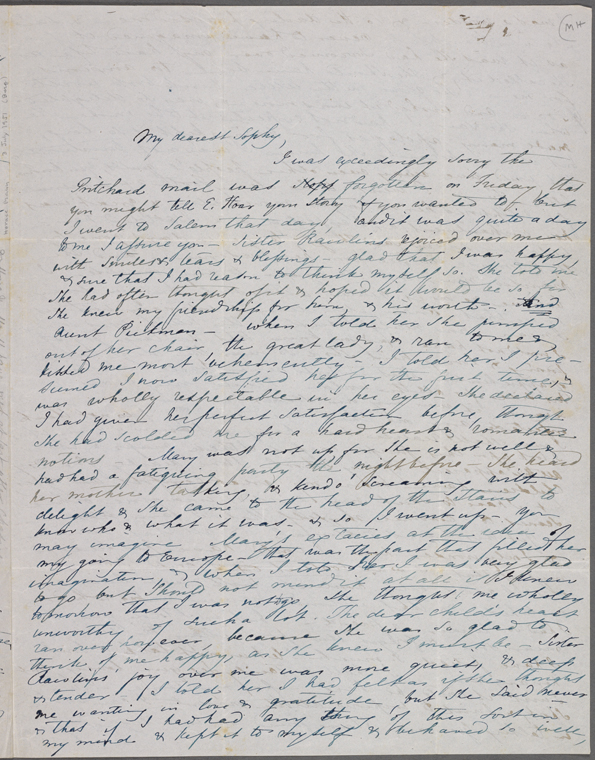 MH
My dearest Sophy,
I was exceedingly sorry the
Pritchard mail was forgotten on Friday, that
you might tell E. Hoar your story if you wanted to - but
I went to Salem that day, and it was quite a day
to me I assure you - Sister Rawlins rejoiced over me
with smiles & tears & blessings - glad that I was happy,
& sure that I had reason to think myself so. She told me
she had often thought of it & hoped it would be so, for
she knew my friendship for him, & his worth - And
Aunt Pickman - when I told her she jumped
out of her chair, the great lady, & ran to me &
kissed me most vehemently - I told her I pre-
sumed I now satisfied her for the first time, &
was wholly respectable in her eyes. She declared
I had given her perfect satisfaction before, though
she had scolded me for a hard heart & romantic
notions - Mary was not up, for she is not well &
had had a fatiguing party the night before - She heard
her mother talking, & kind o' screaming with
delight & she came to the head of the stairs to
know who & what it was, & so I went up - You
may imagine Mary's extacies at the idea of
my going to Europe - that was the part that filled her
imagination, & when I told her I was very glad
to go but should not mind it at all if I knew
tomorrow that I was not to go she thought me wholly
unworthy of such a lot. The dear child's heart
ran over however because she was so glad to
think of me happy, as she knew I must be - Sister
Rawlins' joy over me was more quiet, & deep
& tender - I told her I had felt as if she thought
me wanting in love & gratitude, but she said never
& that if I had had any thing of this sort in
my mind & kept it to myself & behaved so well,